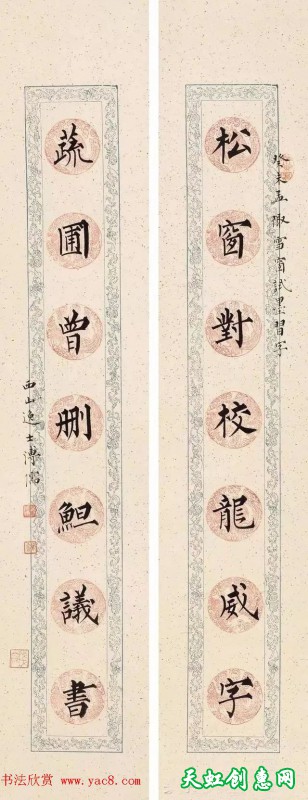 松窗對校龍威字
癸未孟陬雪窗試墨習字
蔬圃曾删䱇議書
西山逸士溥儒
书法欣赏 www.yac8.com
天虹创意网